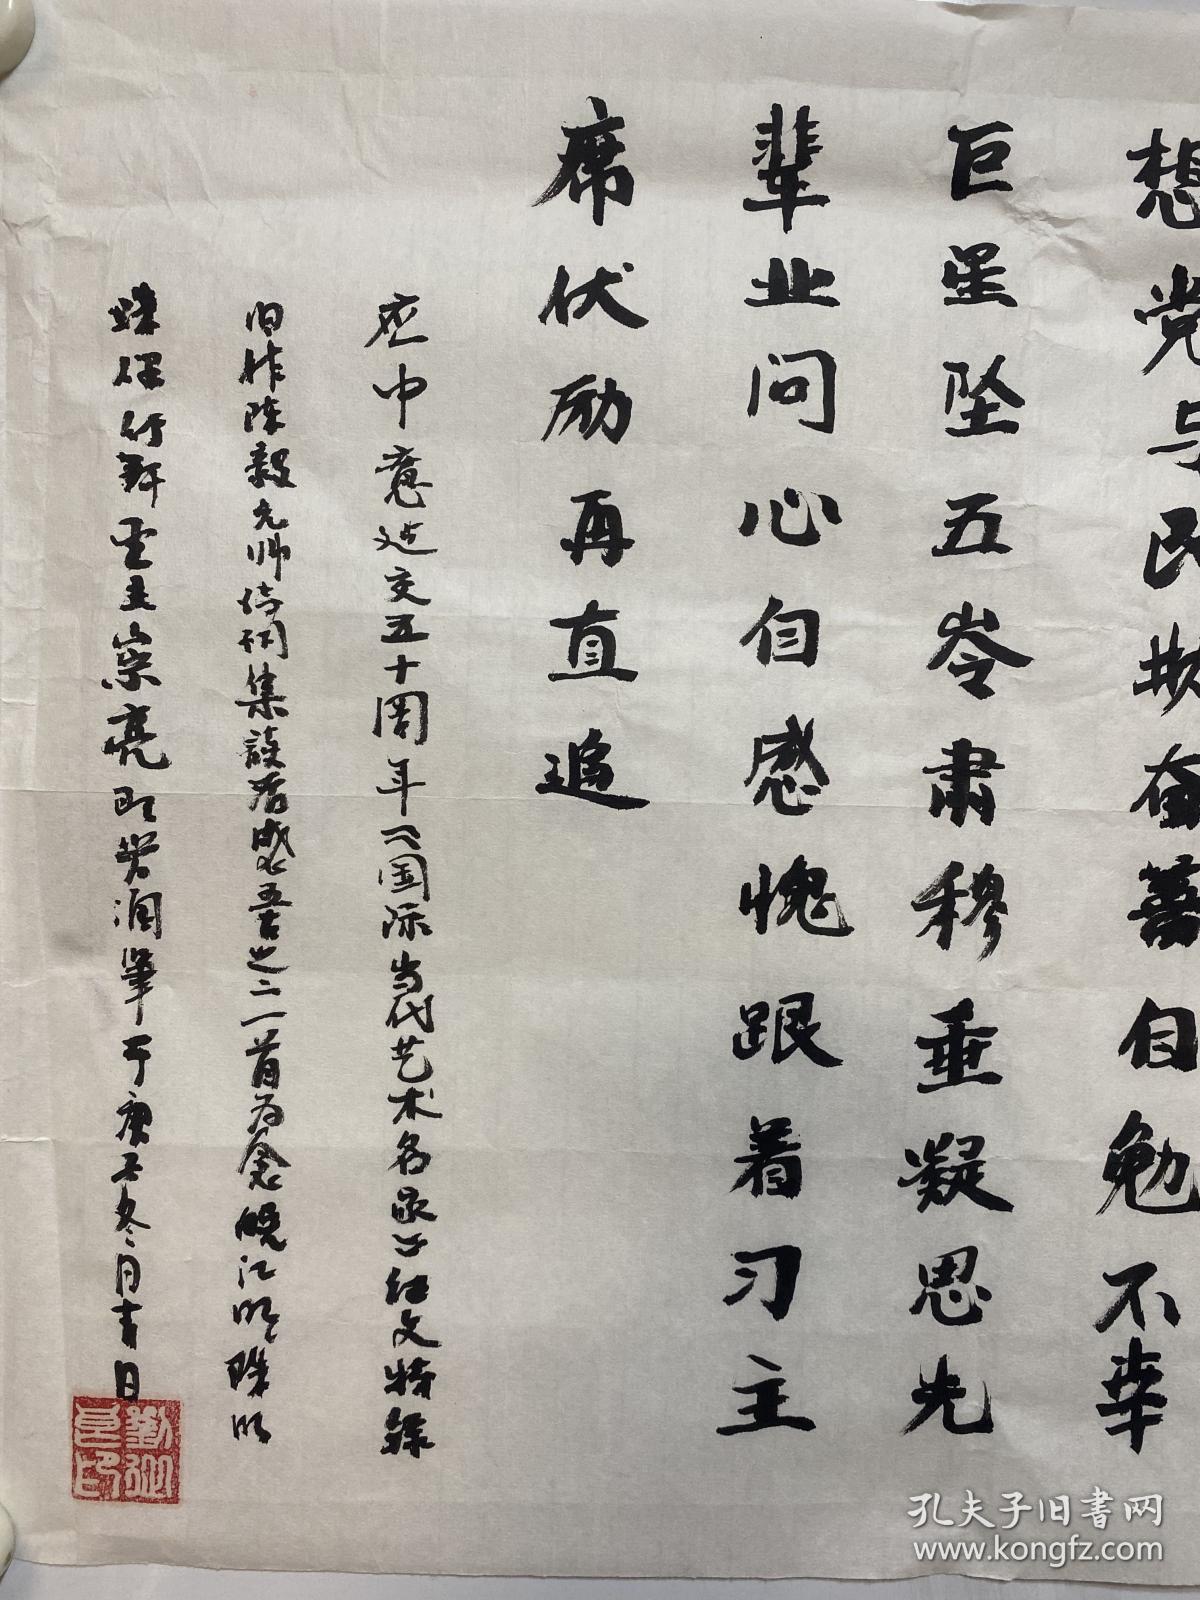 想党与民欺奋蓦自勉不幸
巨星坠五岺肃穆垂凝思先
辈业问心自感愧跟着习主
席伏励再直追
应中意建交五十周年《国际当代艺术名家》红文特录
旧作陈毅元帅诗词集读有感吾之二一首为念晓江明珠
行轩主亮润笔于庚子冬月吉日
孔夫子旧书网
www.kongfz.com